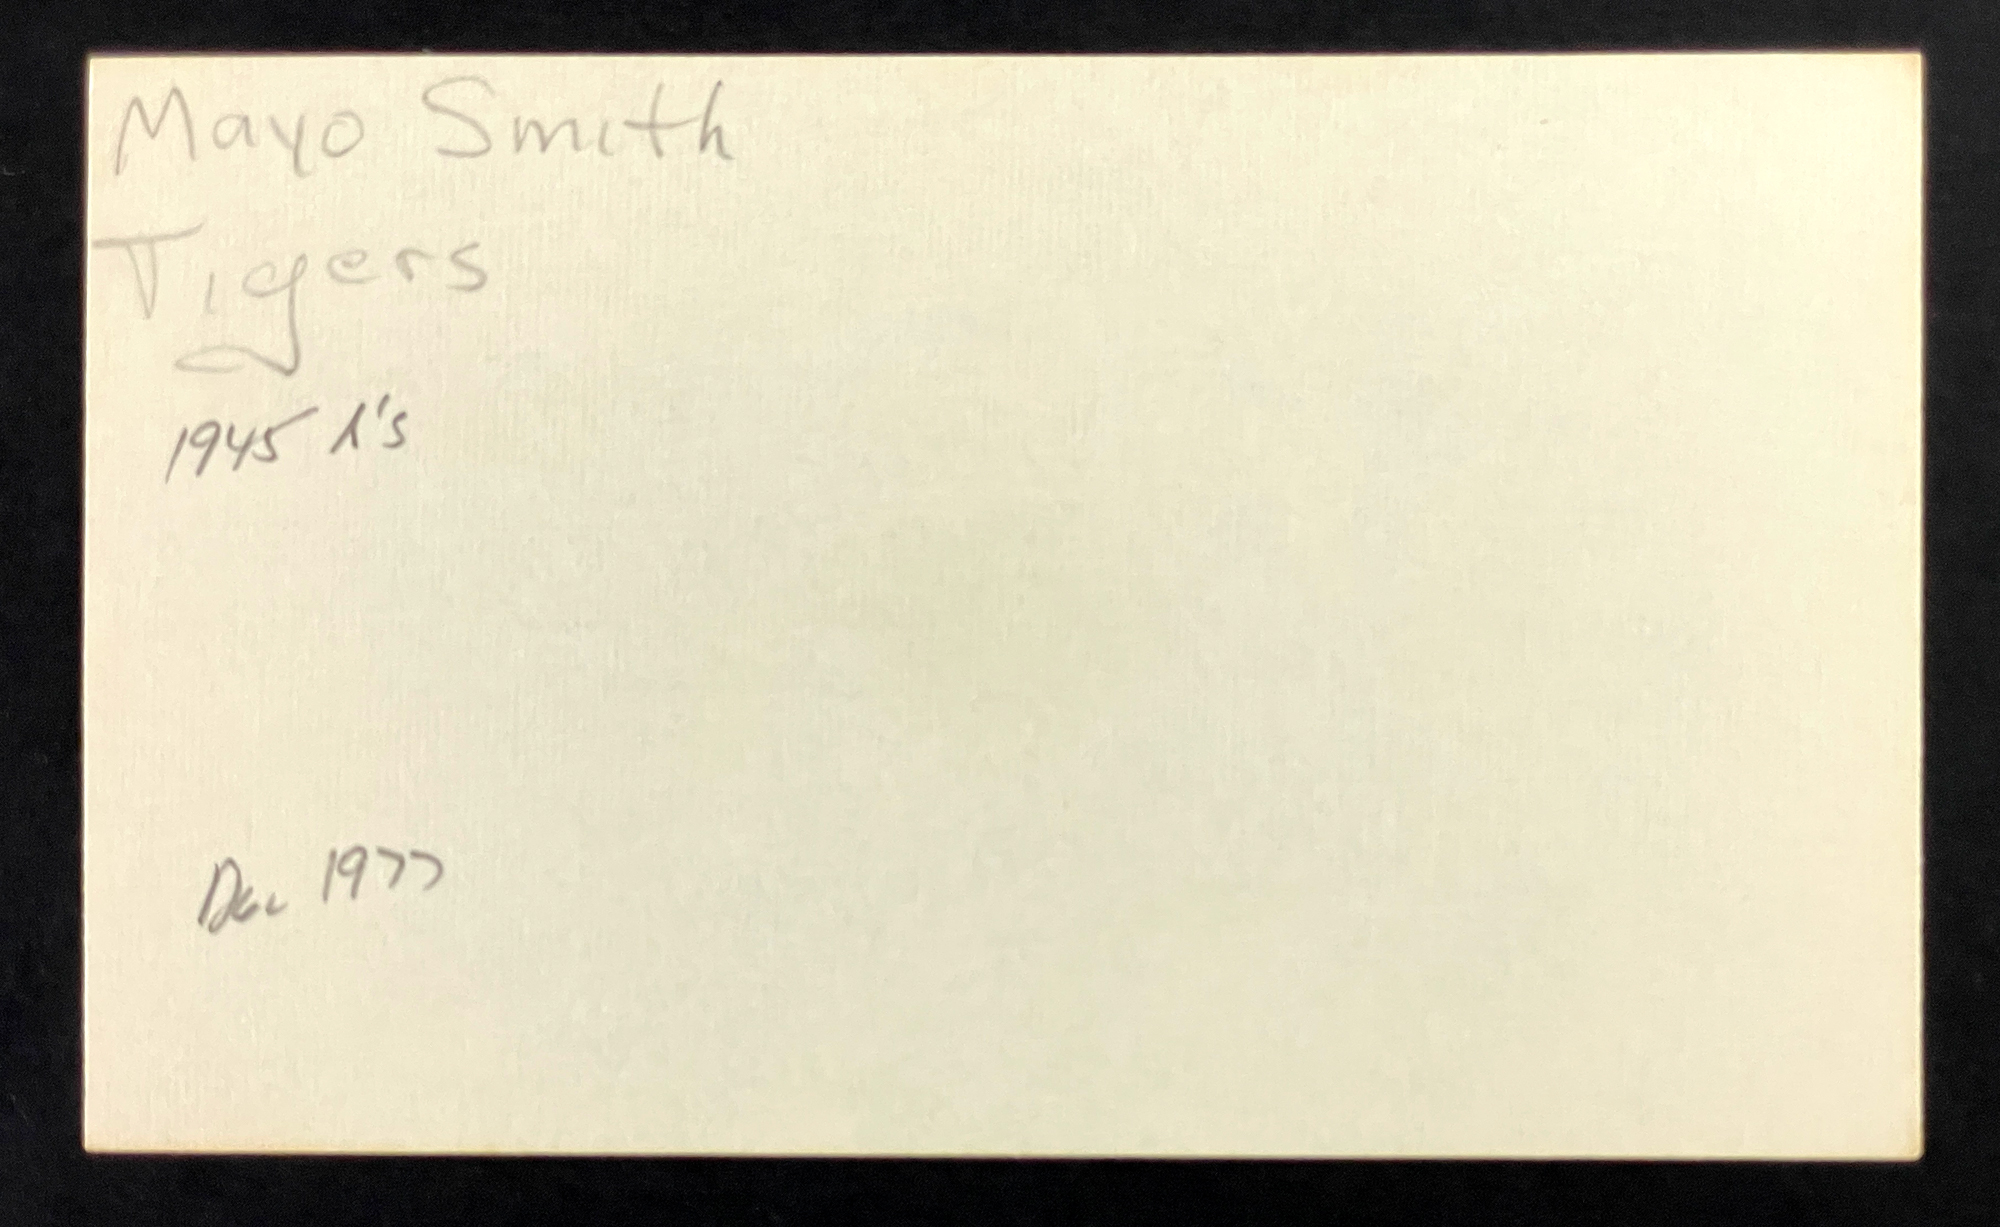 Mayo Smith
Tigers
1945 A's
Dec 1977